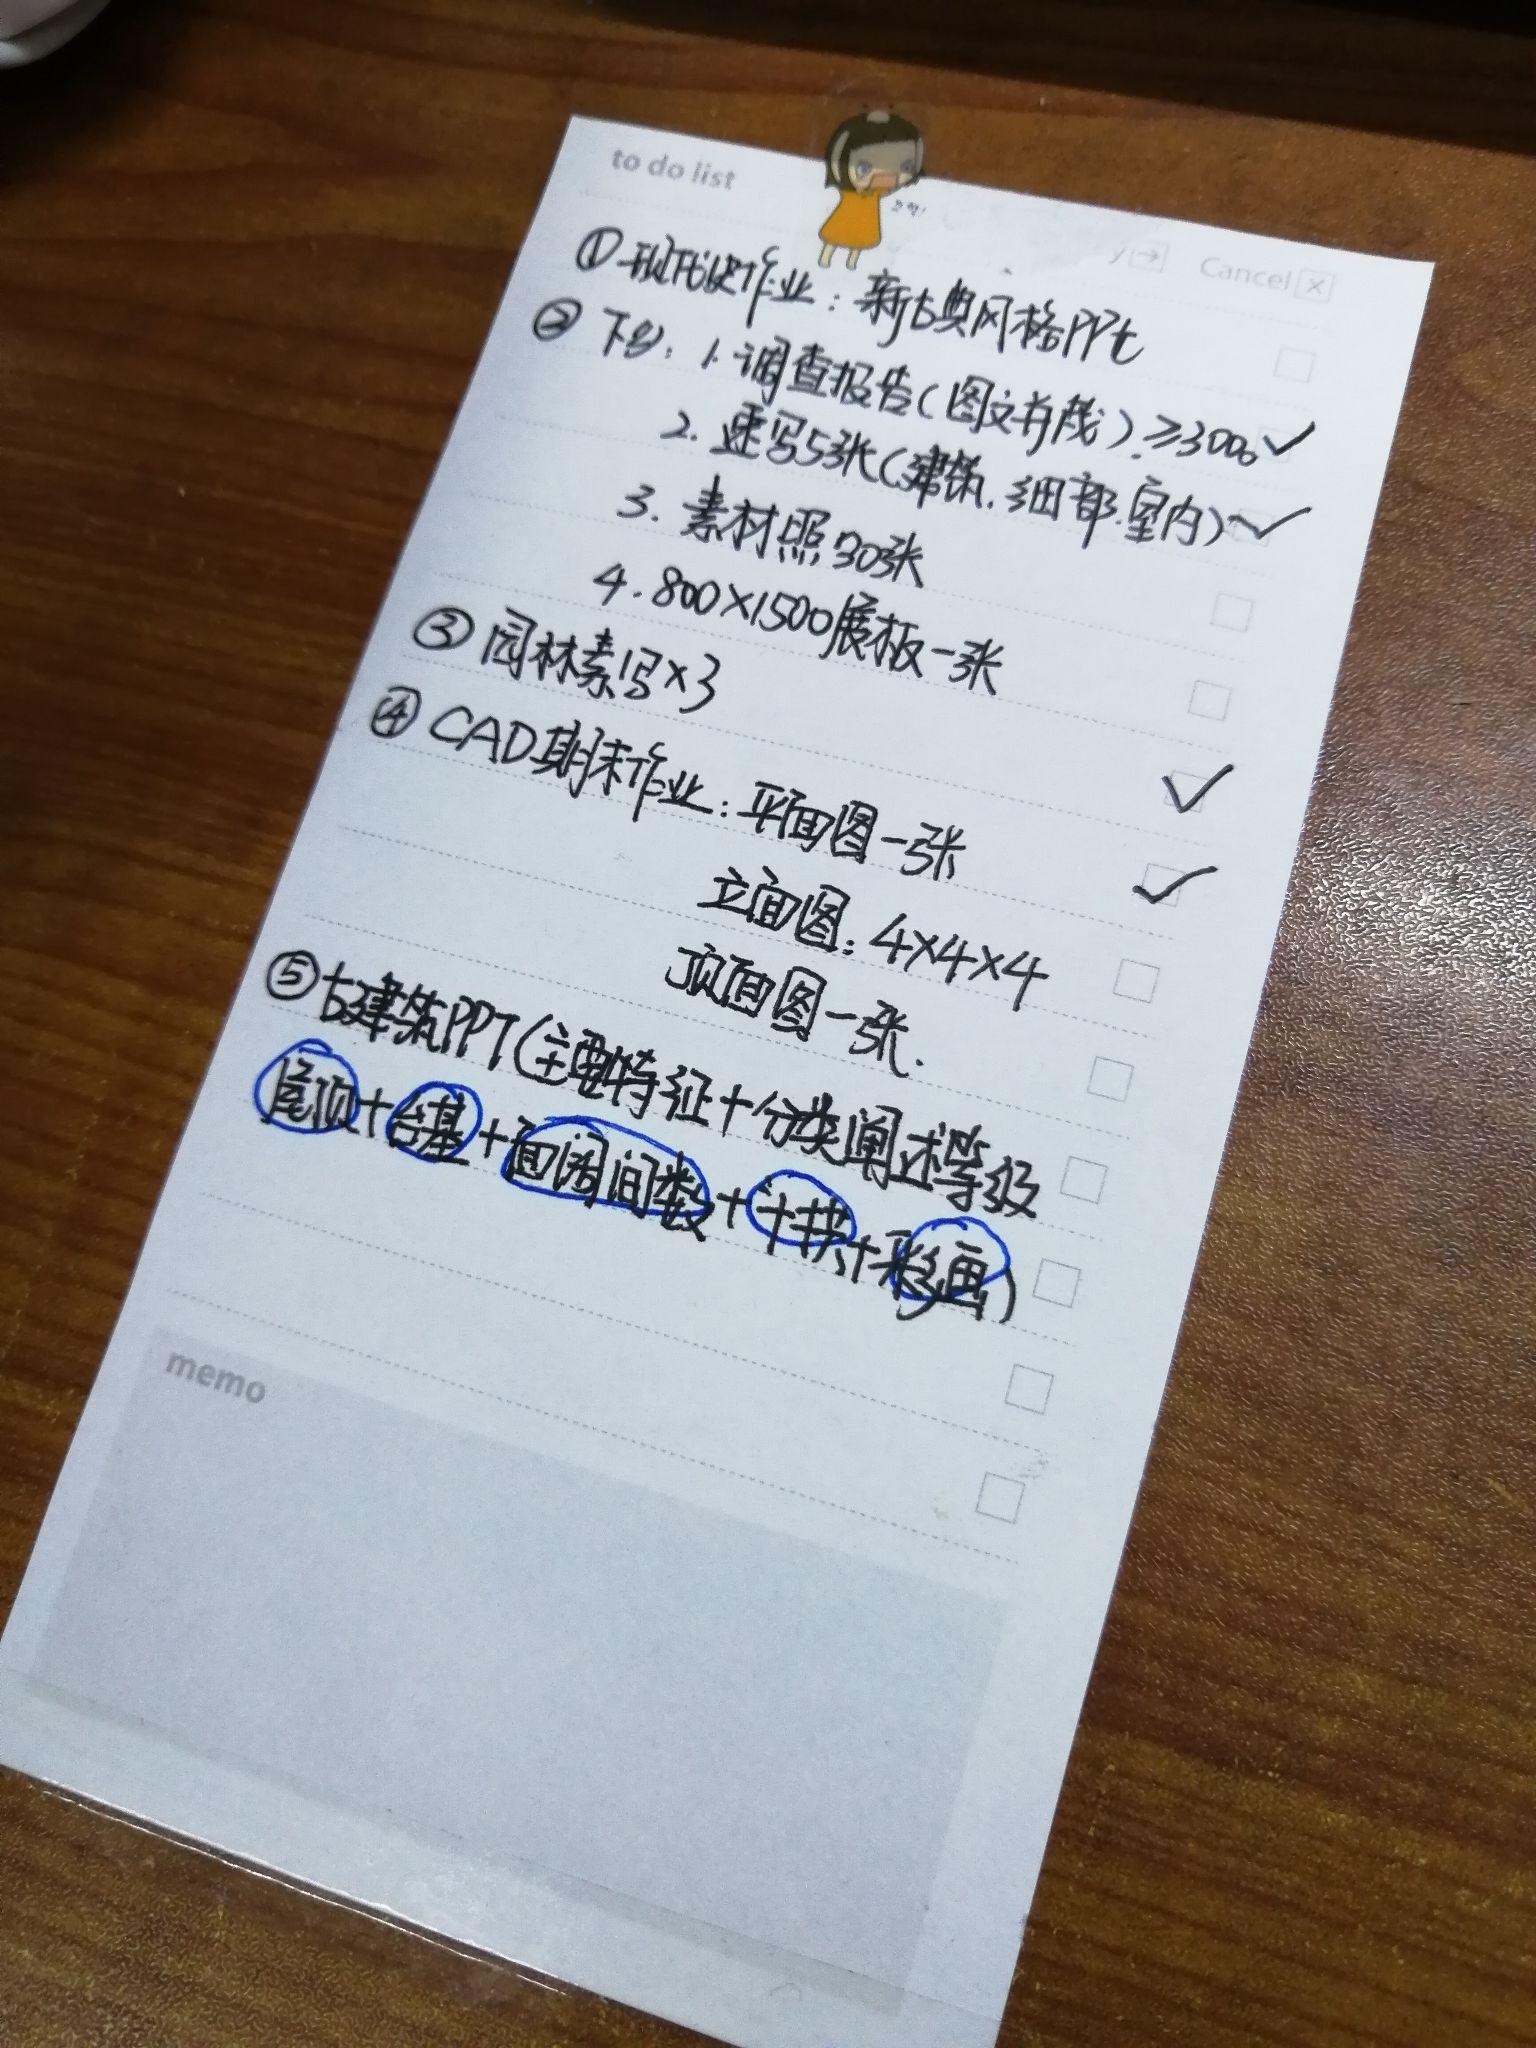 to do list
y → Cancel ×
① 现代设计作业：新古典风格PPt
② 下乡：1. 调查报告(图文并茂).≥3000
2. 速写5张(建筑.细部.室内)
3. 素材照30张
4. 800×1500展板一张
③ 园林素写×3
④ CAD期末作业：平面图一张
立面图：4×4×4
顶面图一张.
⑤古建筑PPT(主要特征+分类阐述等级
屋顶+台基+面阔间数+斗拱+彩画)
memo